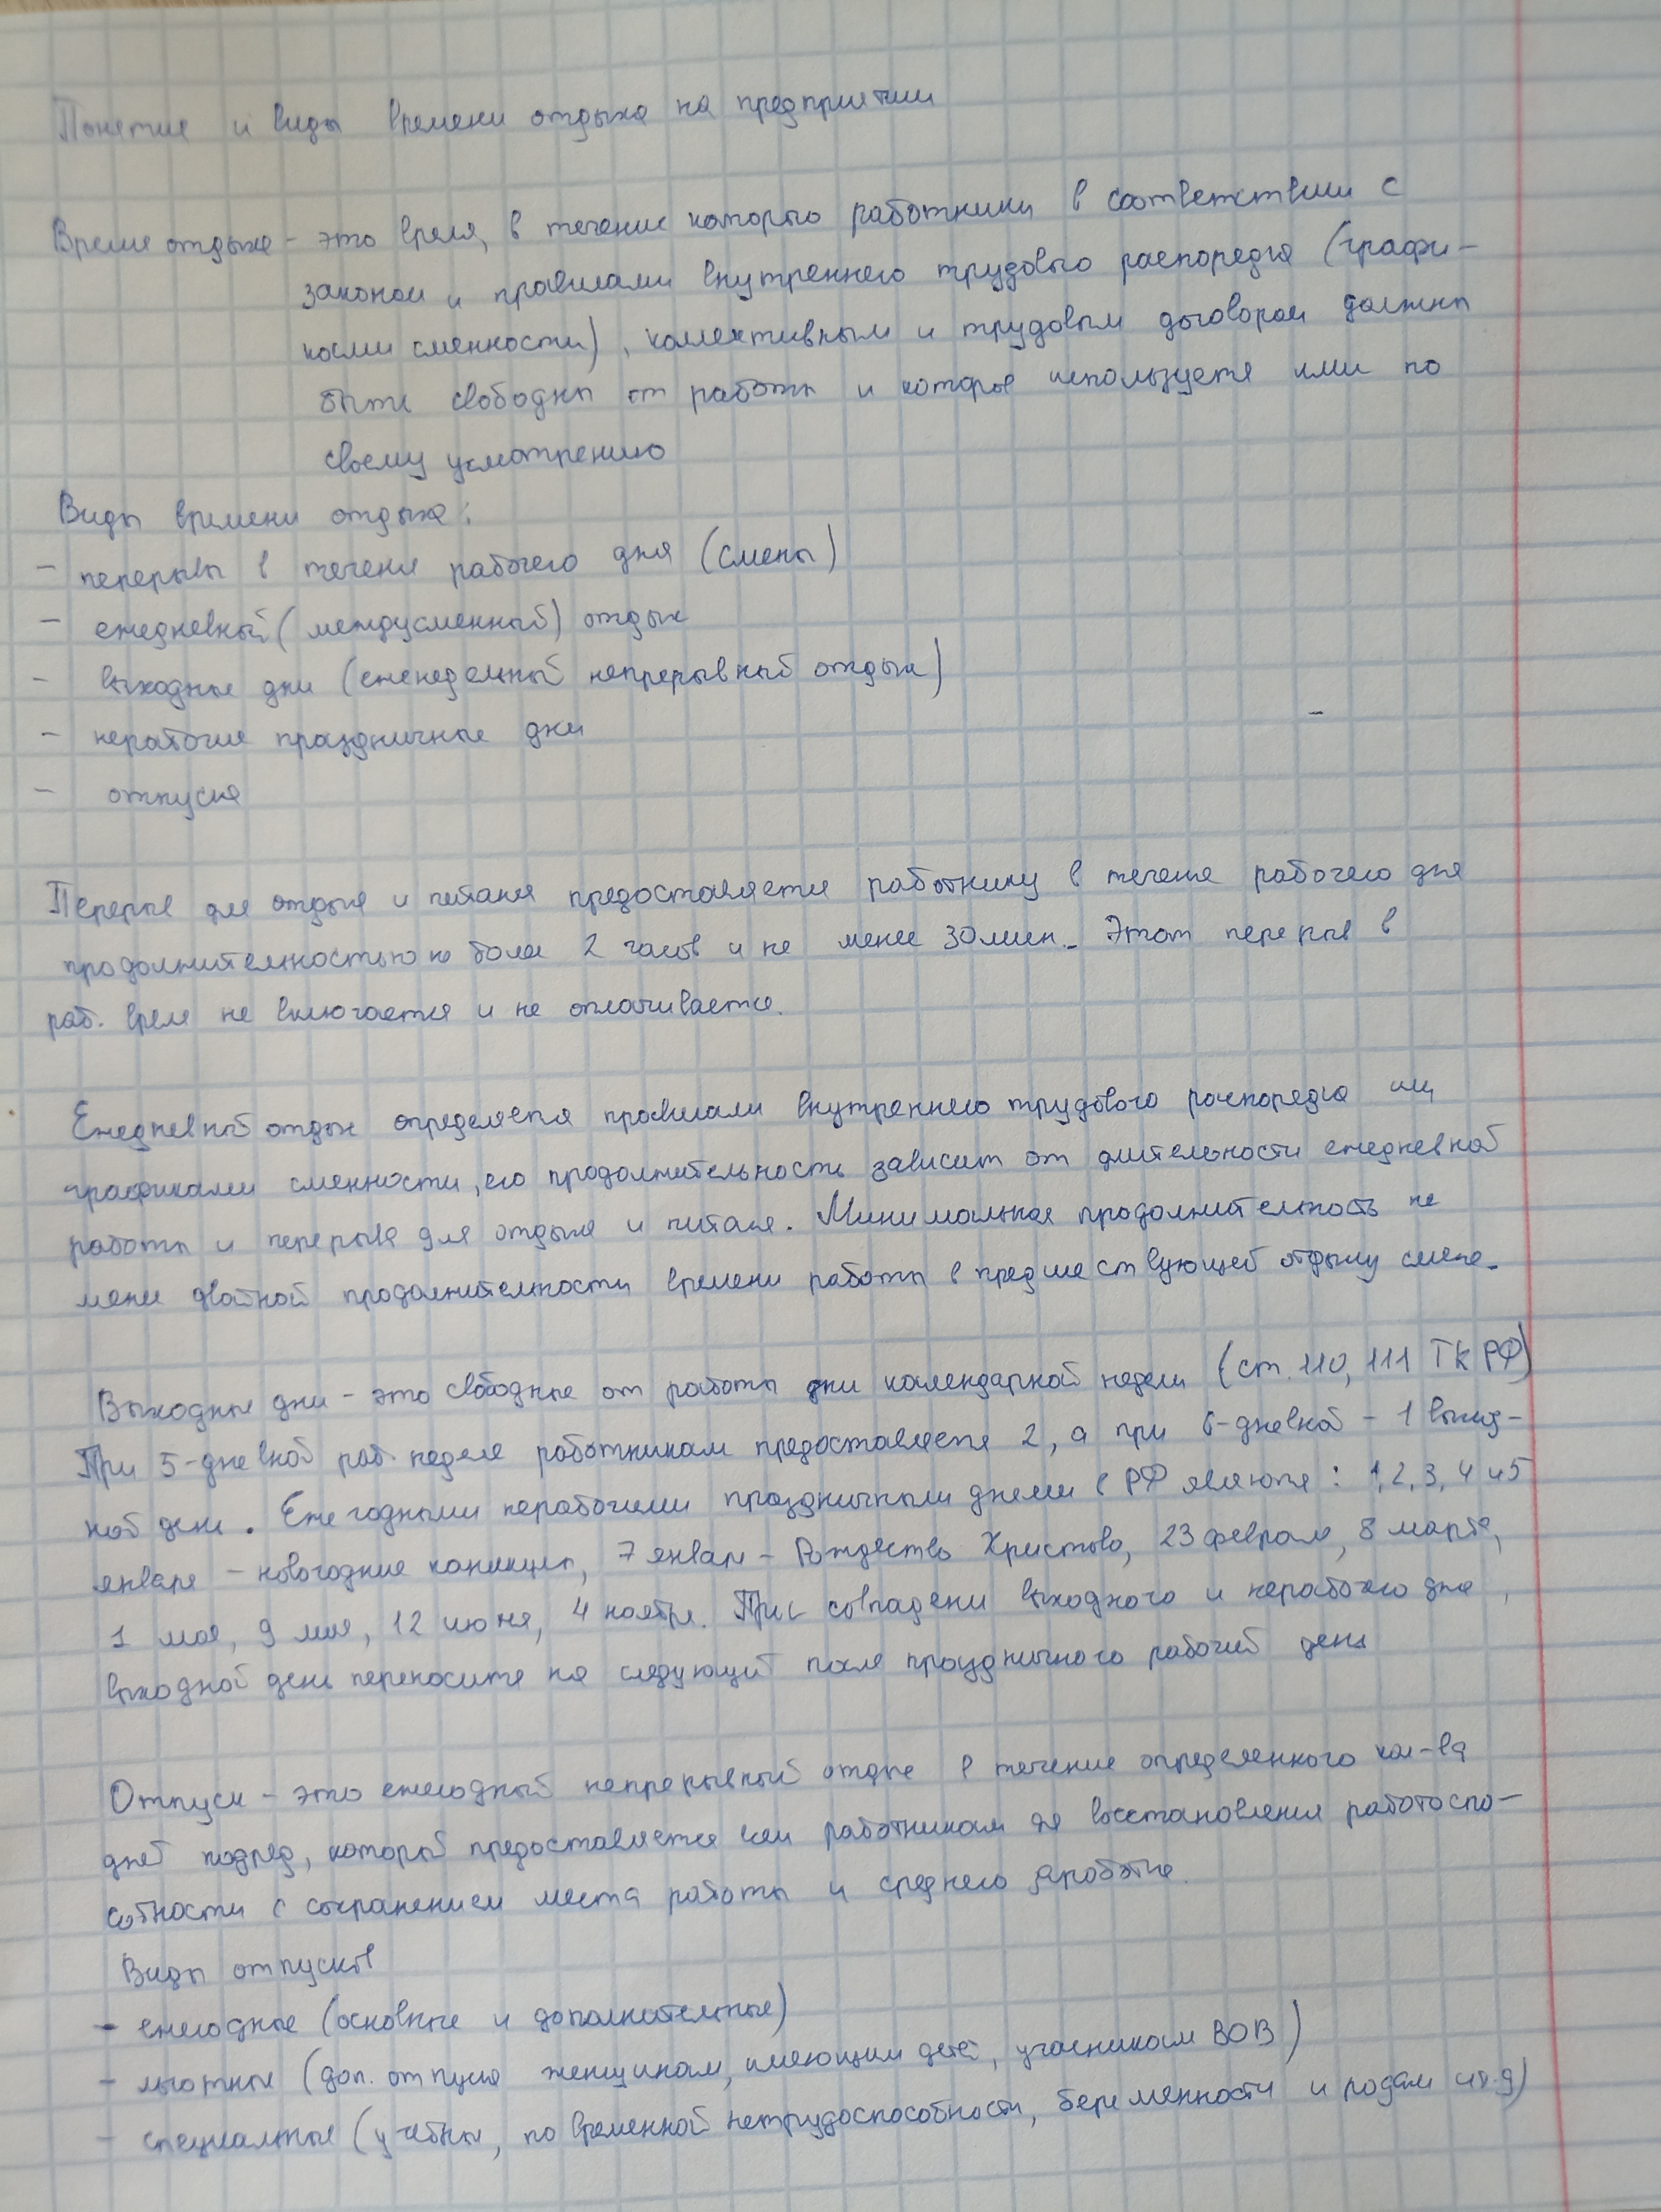 Понятие и виды времени отдыха на предприятии
Время отдыха - это время, в течение которого работники в соответствии с
законом и правилами внутреннего трудового распорядка (графи-
ками сменности), коллективным и трудовым договором должны
быть свободны от работы и которое используется ими по
своему усмотрению
Виды времени отдыха:
- перерывы в течение рабочего дня (смены)
- ежедневный (междусменный) отдых
- выходные дни (еженедельный непрерывный отдых)
- нерабочие праздничные дни
- отпуска
Перерыв для отдыха и питания предоставляется работнику в течение рабочего дня
продолжительностью не более 2 часов и не менее 30 мин. Этот перерыв в
раб. время не включается и не оплачивается.
Ежедневный отдых определяется правилами внутреннего трудового распорядка или
графиками сменности, его продолжительность зависит от длительности ежедневной
работы и перерыва для отдыха и питания. Минимальная продолжительность не
менее двойной продолжительности времени работы в предшествующей отдыху смене.
Выходные дни - это свободные от работы дни календарной недели (ст. 110, 111 ТК РФ)
При 5-дневной раб. неделе работникам предоставляется 2, а при 6-дневной - 1 выход-
ной день. Ежегодными нерабочими праздничными днями в РФ являются: 1, 2, 3, 4 и 5
января - новогодние каникулы, 7 января - Рождество Христово, 23 февраля, 8 марта,
1 мая, 9 мая, 12 июня, 4 ноября. При совпадении выходного и нерабочего дня,
выходной день переносится на следующий после праздничного рабочий день
Отпуск - это ежегодный непрерывный отдых в течение определенного кол-ва
дней подряд, который предоставляется всем работникам для восстановления работоспо-
собности с сохранением места работы и среднего заработка.
Виды отпусков
- ежегодные (основные и дополнительные)
- льготные (доп. отпуска женщинам, имеющим детей, участникам ВОВ)
- специальные (учебные, по временной нетрудоспособности, беременности и родам и т.д)